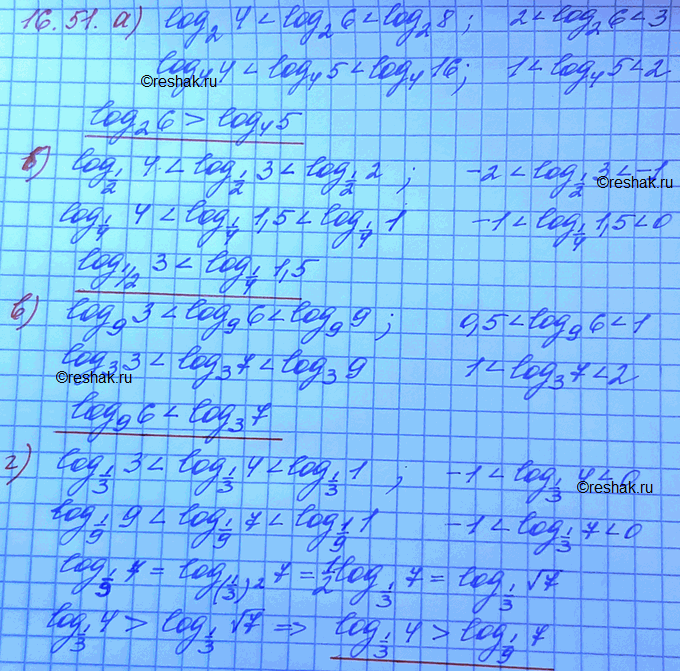 16.51. а) log₂ 4 < log₂ 6 < log₂ 8; 2 < log₂ 6 < 3
log₄ 4 < log₄ 5 < log₄ 16; 1 < log₄ 5 < 2
©reshak.ru
log₂ 6 > log₄ 5
б) log_{1/2} 4 < log_{1/2} 3 < log_{1/2} 2; -2 < log_{1/2} 3 < -1
©reshak.ru
log_{1/4} 4 < log_{1/4} 1,5 < log_{1/4} 1 -1 < log_{1/4} 1,5 < 0
log_{1/2} 3 < log_{1/4} 1,5
в) log₉ 3 < log₉ 6 < log₉ 9; 0,5 < log₉ 6 < 1
log₃ 3 < log₃ 7 < log₃ 9 1 < log₃ 7 < 2
©reshak.ru
log₉ 6 < log₃ 7
г) log_{1/3} 3 < log_{1/3} 4 < log_{1/3} 1; -1 < log_{1/3} 4 < 0
©reshak.ru
log_{1/9} 9 < log_{1/9} 7 < log_{1/9} 1 -1 < log_{1/3} 7 < 0
log_{1/9} 7 = log_{(1/3)²} 7 = 1/2 log_{1/3} 7 = log_{1/3} √7
log_{1/3} 4 > log_{1/3} √7 => log_{1/3} 4 > log_{1/9} 7